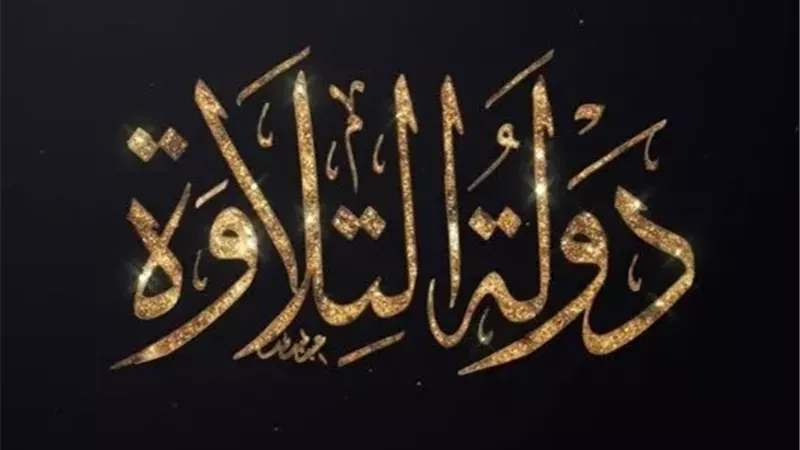 دَوْلَةُ التِلَاوَة